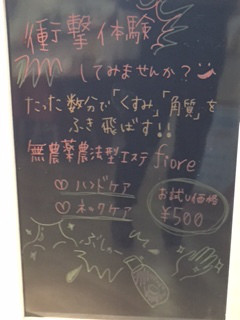 衝撃体験
してみませんか?
たった数分で「くすみ」「角質」を
ふき飛ばす!!
無農薬農法型エステ fiore
♡ ハンドケア
♡ ネックケア
お試し価格
¥500
ぷしゅー